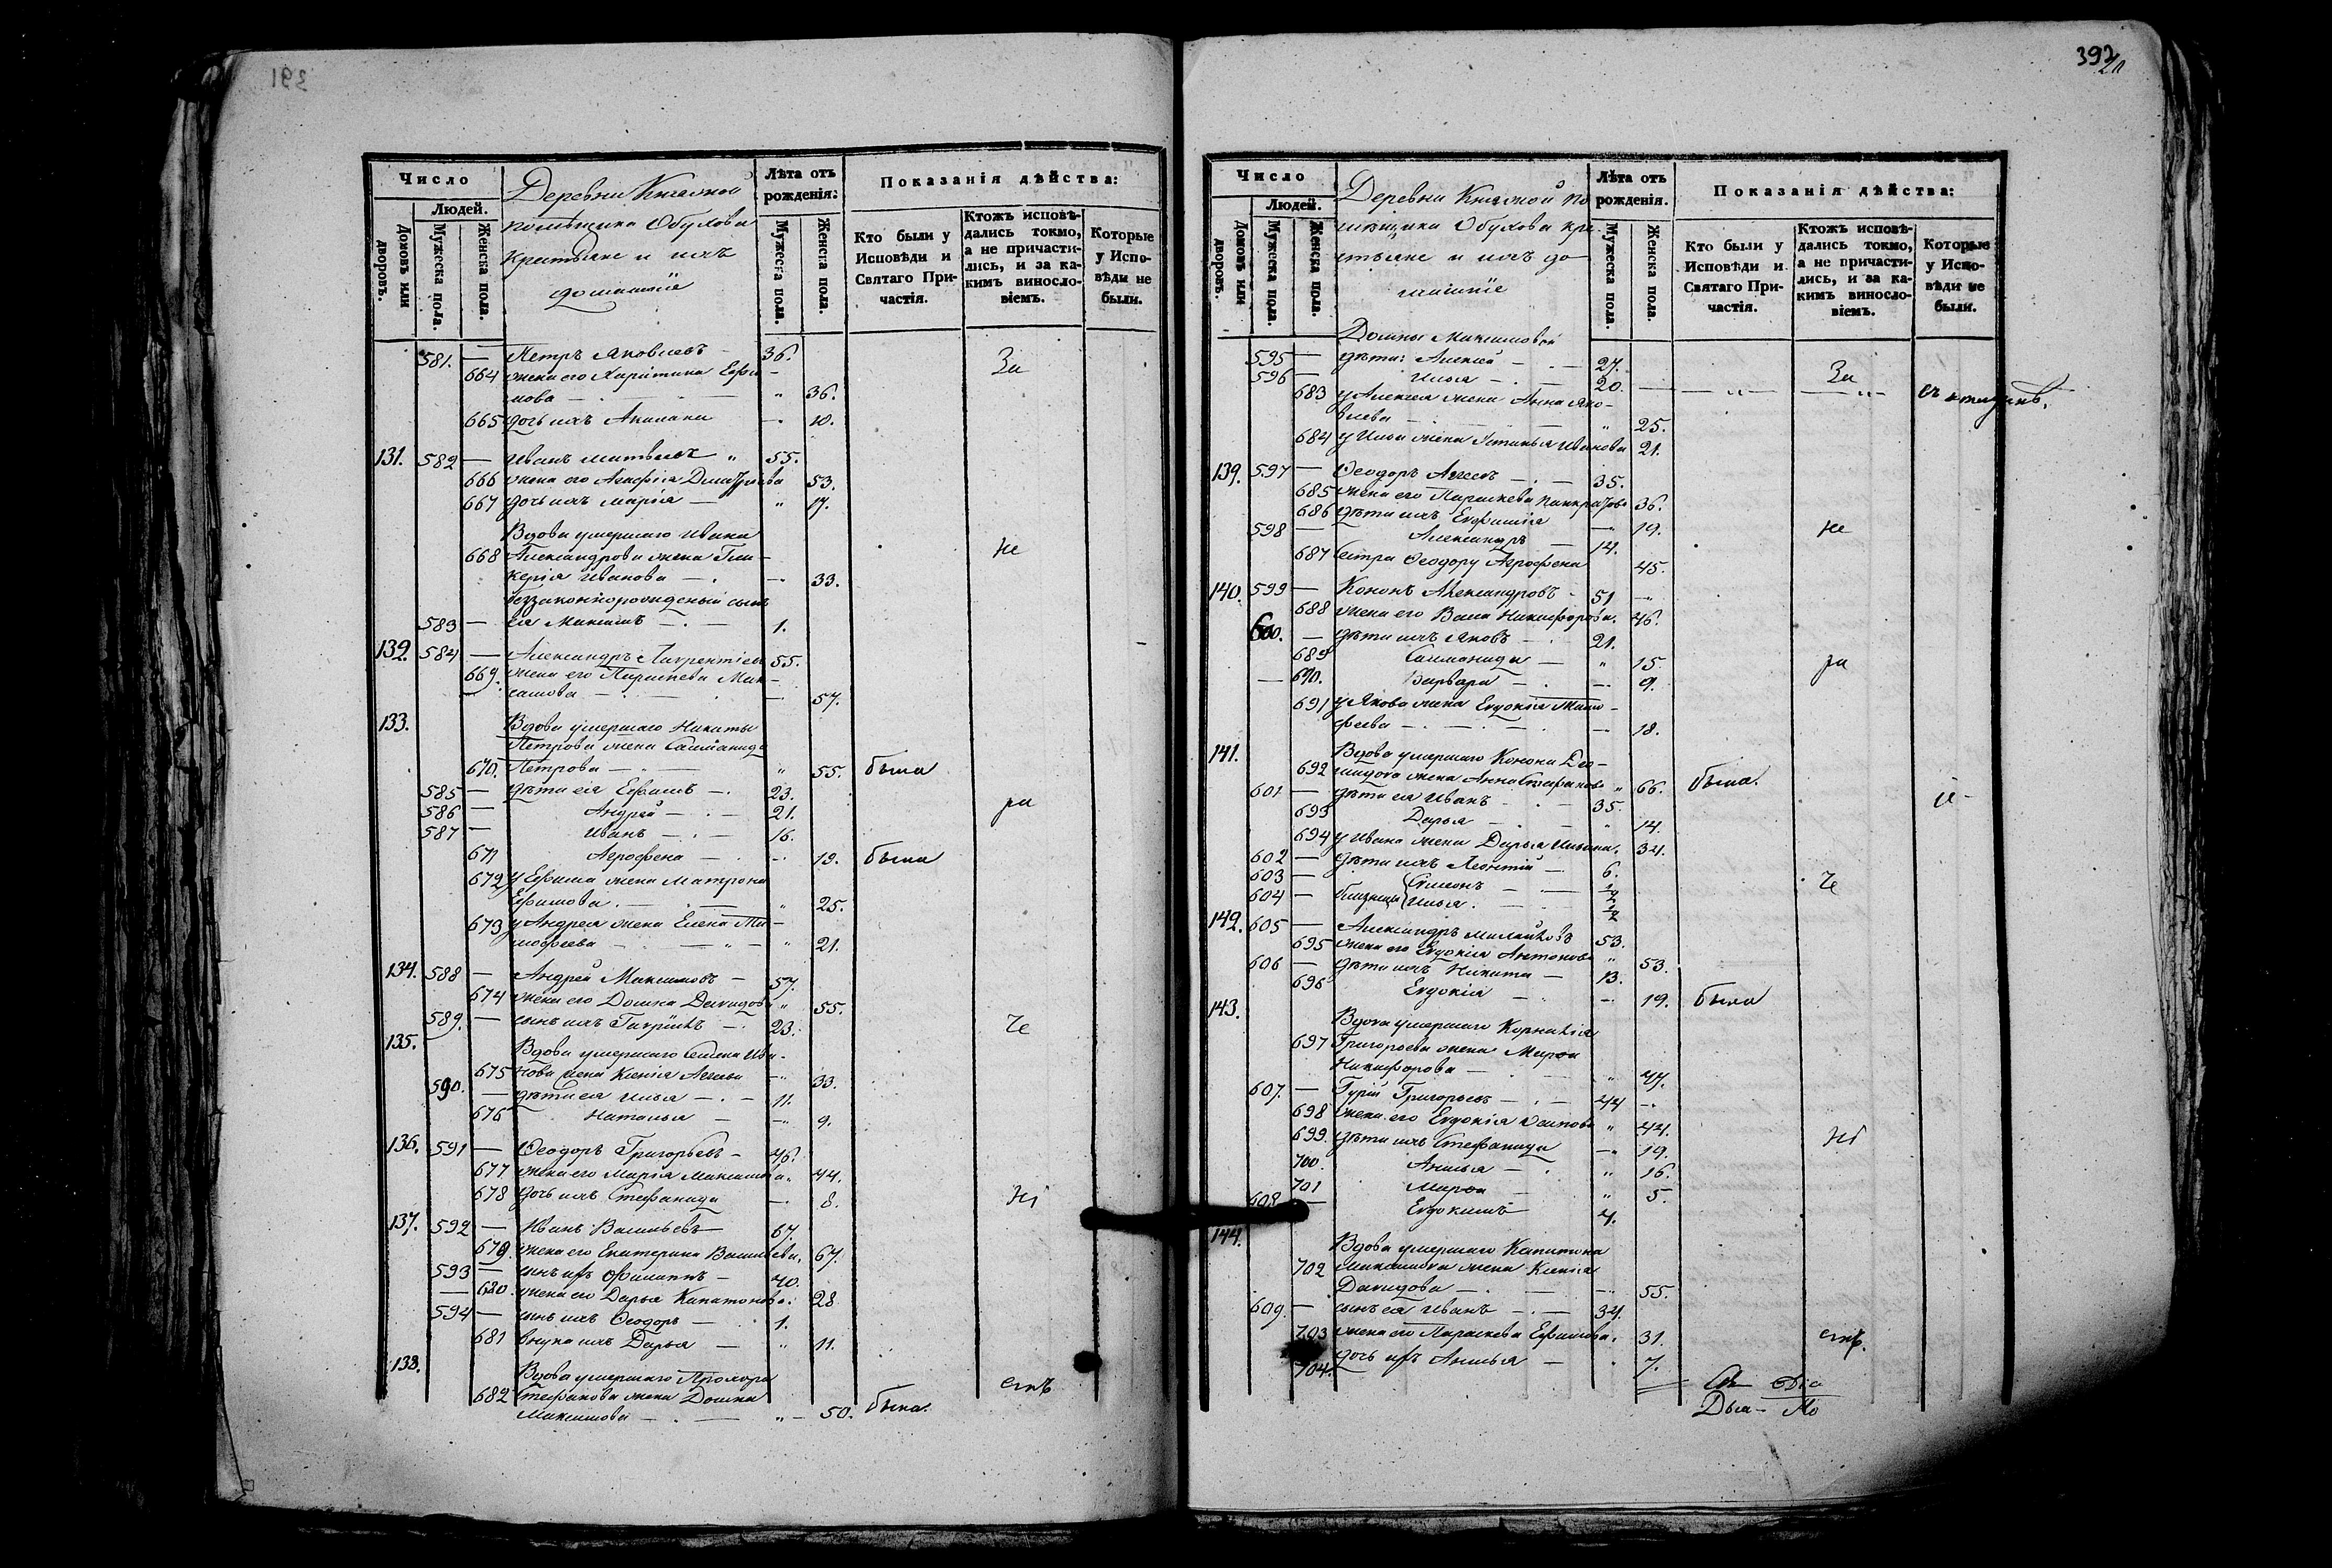 391
Число
Людей.
Домовъ или дворовъ.
Мужеска пола.
Женска пола.
Деревни Княжой
помѣщика Обухова
крестьяне и ихъ
домашніе
Лѣта отъ рожденія:
Мужеска пола.
Женска пола.
Показанія дѣйства:
Кто были у Исповѣди и Святаго Причастія.
Ктожъ исповѣдались токмо, а не причастились, и за какимъ винословіемъ.
Которые у Исповѣди не были.
581. — Петръ Яковлевъ — 36. За
664 жена его Харитина Ефи-
мова — " 36.
665 дочь ихъ Акилина — 10.
131. 582 — Иванъ Матвѣевъ " 55.
666 жена его Агафія Димитріева 53.
667 дочь ихъ Марія — " 17.
Вдова умершаго Ивана
668 Александрова жена Гли- не
керія Иванова — 33.
беззаконнорожденый сынъ
583 — ея Максимъ — 1.
132. 584 — Александръ Лаврентіевъ 55.
669. жена его Параскева Мак-
симова — 57.
133. Вдова умершаго Никиты
Петрова жена Саломанида
670. Петрова — " 55. была
585 — дѣти ея Ефимъ — 23.
586 — Андрей — 21. ра
587 — Иванъ — 16.
671 Агрофена — 19. была
672 у Ефима жена Матрона
Ефимова — " 25.
673 у Андрея жена Елена Ти-
мофеева — " 21.
134. 588 — Андрей Максимовъ — 57.
674 жена его Домна Давидова " 55.
589. — сынъ ихъ Гавріилъ — 23. че
135. Вдова умершаго Семена Ива-
675 нова жена Ксенія 33.
590. — дѣти ея Илья — 11.
676 Наталья — 9.
136. 591 — Ѳеодоръ Григорьевъ — 46.
677 жена его Марія Максимова " 44.
678 дочь ихъ Стефанида — 8. ні
137. 592 — Иванъ Васильевъ — 67.
679. жена его Екатерина Васильева, 67.
593 — сынъ ихъ Филиппъ — 40.
680. жена его Дарья Капитонова. 28
594 — сынъ ихъ Ѳеодоръ — 1.
681 внука ихъ Дарья — " 11.
138. Вдова умершаго Прохора
682 Стефанова жена Домна емъ
Максимова — " 50. была.
392
Число
Людей.
Домовъ или дворовъ.
Мужеска пола.
Женска пола.
Деревни Княжой по
мѣщика Обухова кре-
стьяне и ихъ до
машніе
Лѣта отъ рожденія.
Мужеска пола.
Женска пола.
Показанія дѣйства:
Кто были у Исповѣди и Святаго Причастія.
Ктожъ исповѣдались токмо, а не причастились, и за какимъ винословіемъ.
Которые у Исповѣди не были.
Домны Максимовой
595 — дѣти: Алексей — 27. За
596 — Илья — 20.
683 у Алексея жена Анна Яко-
влева — " 25.
684 у Ильи жена Устинья Иванова 21.
139. 597 — Ѳеодоръ — 35.
685 жена его Параскева Панкратова 36.
686 дѣти ихъ Евфимія — 19. не
598 — Александръ — 14.
687 сестра Ѳеодору Агрофена 45.
140. 599 — Кононъ Александровъ — 51
688 жена его Васса Никифорова. 46.
600. — дѣти ихъ Яковъ — 21.
689 Саломанида — " 15. ра
690. Варвара — 9.
691 у Якова жена Евдокія Тимо-
феева — 18.
141. Вдова умершаго Конона Део-
692 мидова жена Анна Стефанова " 66. была.
601 — дѣти ея Иванъ — 35.
693 Дарья — " 14.
694 у Ивана жена Дарья 34.
602 — дѣти ихъ Леонтій — 6.
603 — Симеонъ — 1/2 че
604 — близнецы Илья — 1/2
142. 605 — Александръ 53.
695 жена его Евдокія Антонова " 53.
606 — дѣти ихъ Никита — 13.
696 Евдокія — 19. была
143. Вдова умершаго Корнилія
697 Григорьева жена Марѳа
Никифорова — " 47.
607. — Гурій Григорьевъ — 44
698 жена его Евдокія Осипова " 44.
699. дѣти ихъ Стефанида — 19. ні
700. Анисья — " 16.
701 Марѳа " 5.
608 — Евдокимъ 4.
144. Вдова умершаго Капитона
702 Максимова жена Ксенія
Давидова — 55.
609. — сынъ ея Иванъ — 34.
703 жена его Параскева Ефимова. 31. емъ.
704. дочь ихъ Анисья — 7.